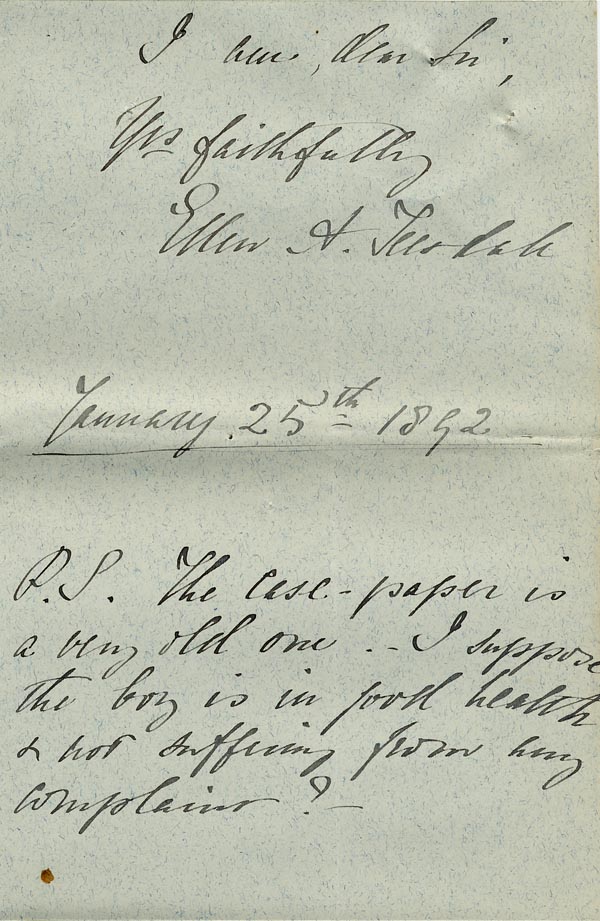 I am, dear Sir,
Yrs faithfully
Ellen A. Teesdale
January 25th 1892
P.S. The case-paper is
a very old one. - I suppose
the boy is in good health
& not suffering from any
complaint? -